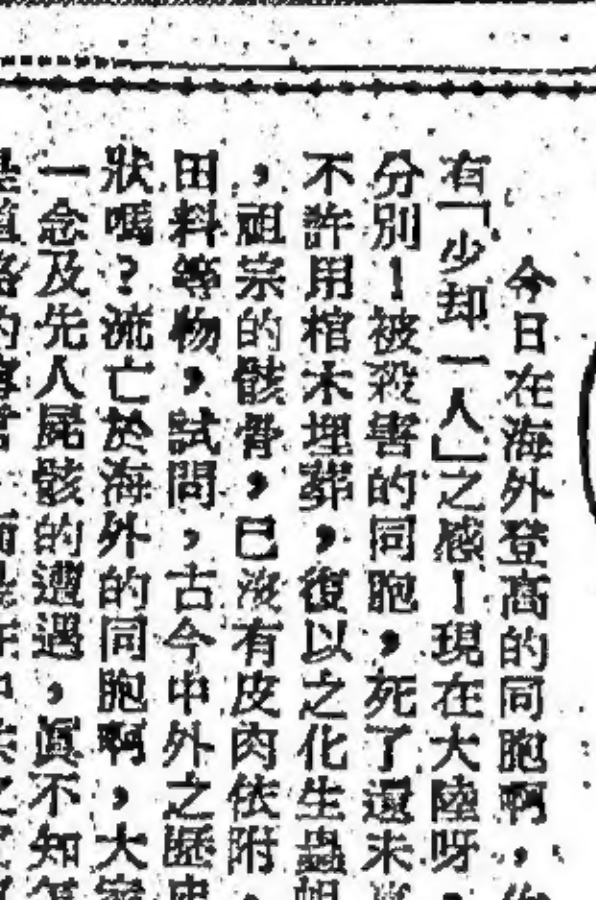 今日在海外登高的同胞啊，
有「少却一人」之感！現在大陸呀，
分別！被殺害的同胞，死了還未
不許用棺木埋葬，復以之化生蟲蛆
，祖宗的骸骨，已沒有皮肉依附，
田料等物，試問，古今中外之歷史
狀嗎？流亡於海外的同胞啊，大家
一念及先人屍骸的遭遇，眞不知怎